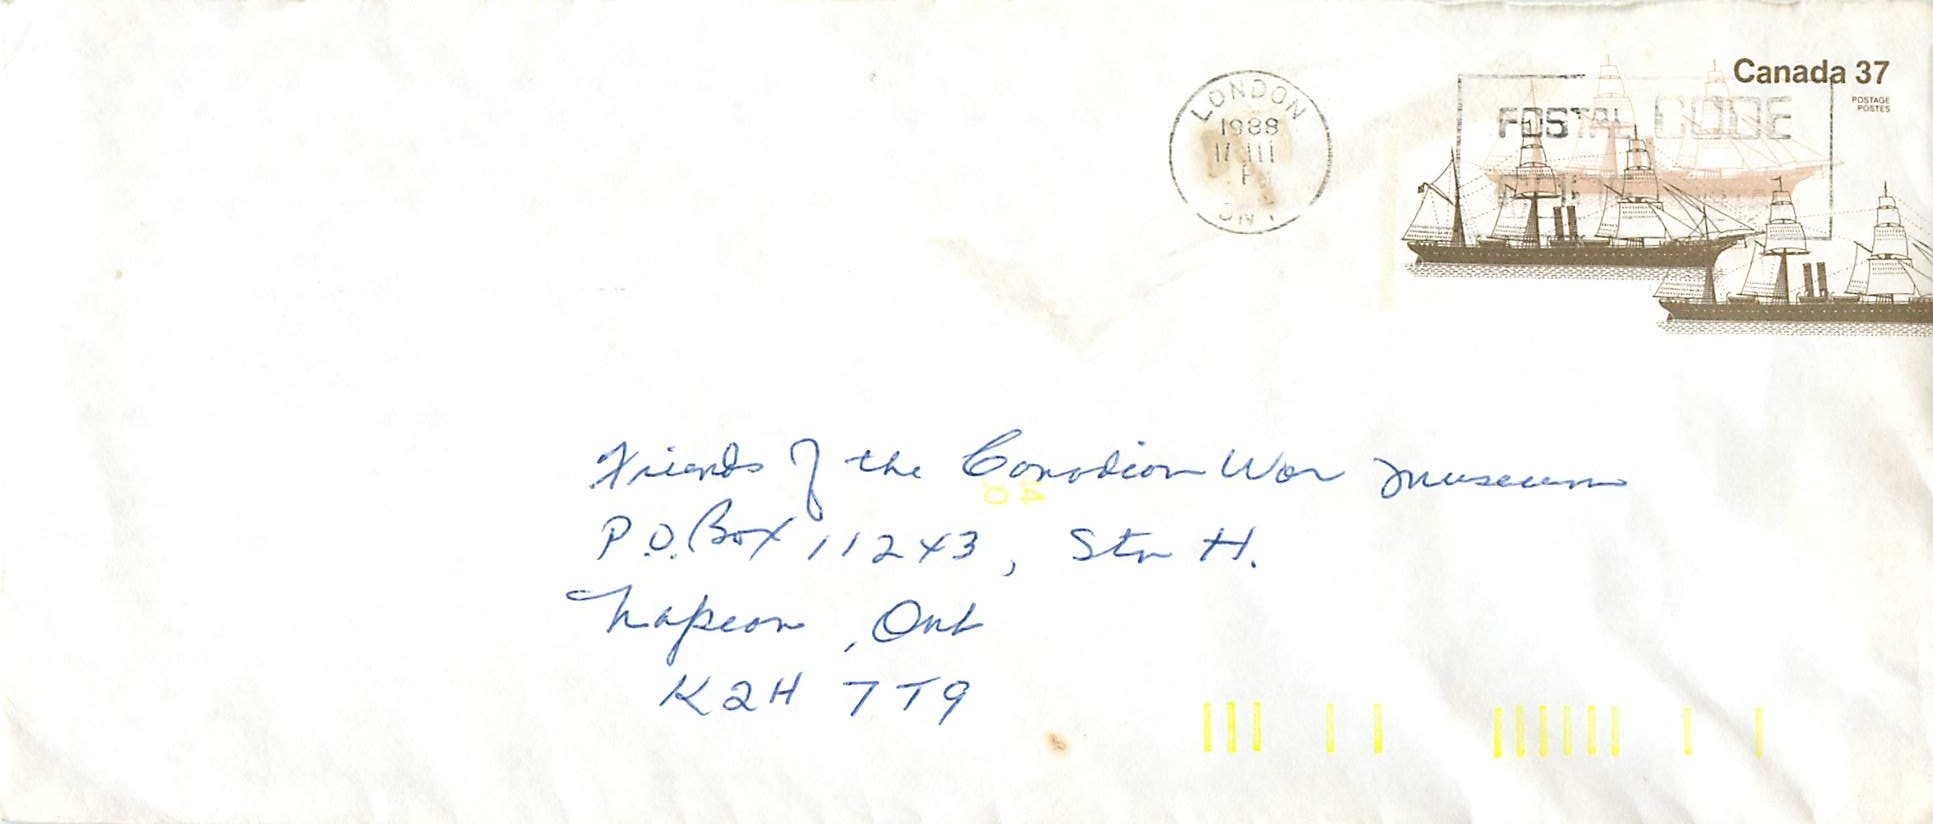 Canada 37
POSTAGE
POSTES
LONDON
1988
17 III
PM
ONT
POSTAL CODE
Friends of the Canadian War Museum
P.O. Box 11243, Stn H.
Napean, Ont
K2H 7T9